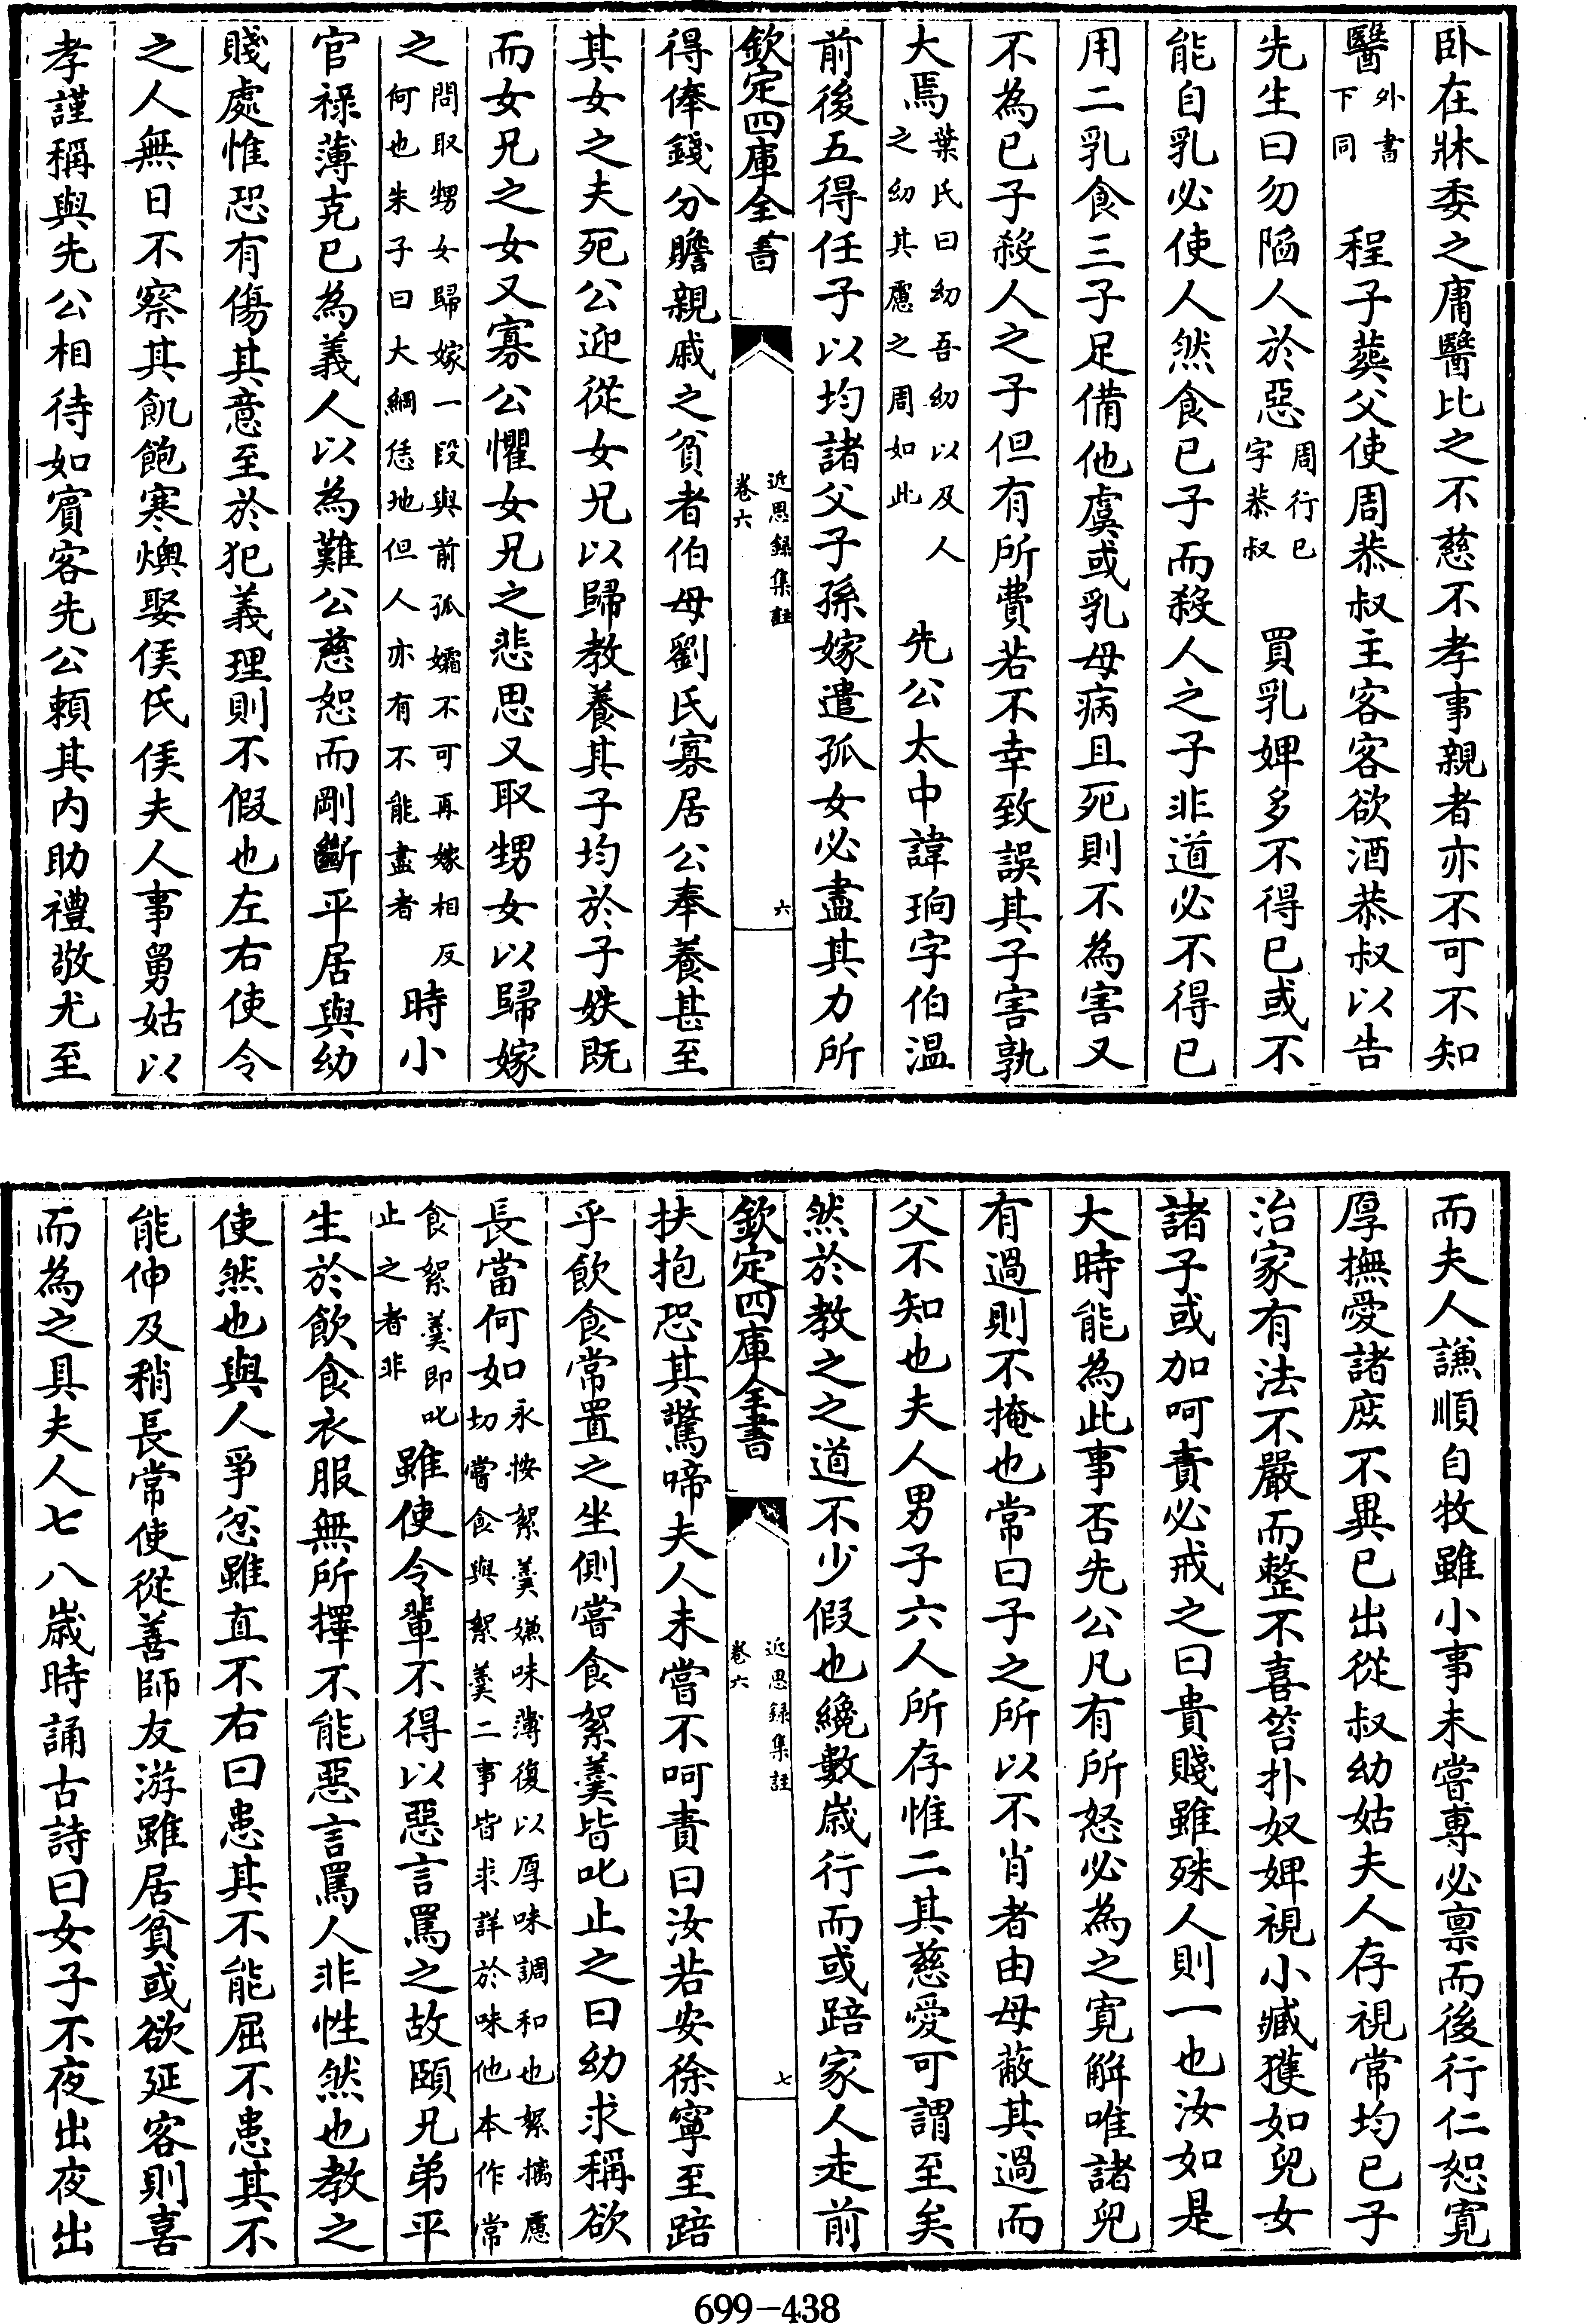 卧在牀委之庸醫比之不慈不孝事親者亦不可不知
醫外書下同 程子葬父使周恭叔主客客欲酒恭叔以告
先生曰勿陷人於惡周行已字恭叔 買乳婢多不得已或不
能自乳必使人然食已子而殺人之子非道必不得已
用二乳食三子足備他虞或乳母病且死則不為害又
不為已子殺人之子但有所費若不幸致誤其子害孰
大焉葉氏曰幼吾幼以及人之幼其慮之周如此 先公太中諱珦字伯温
前後五得任子以均諸父子孫嫁遣孤女必盡其力所
欽定四庫全書 近思録集註 卷六 六
得俸錢分贍親戚之貧者伯母劉氏寡居公奉養甚至
其女之夫死公迎從女兄以歸教養其子均於子姪既
而女兄之女又寡公懼女兄之悲思又取甥女以歸嫁
之問取甥女歸嫁一段與前孤孀不可再嫁相反何也朱子曰大綱恁地但人亦有不能盡者 時小
官祿薄克已為義人以為難公慈恕而剛斷平居與幼
賤處惟恐有傷其意至於犯義理則不假也左右使令
之人無日不察其飢飽寒燠娶侯氏侯夫人事舅姑以
孝謹稱與先公相待如賓客先公賴其內助禮敬尤至
而夫人謙順自牧雖小事未嘗專必禀而後行仁恕寬
厚撫愛諸庶不異已出從叔幼姑夫人存視常均已子
治家有法不嚴而整不喜笞扑奴婢視小臧獲如兒女
諸子或加呵責必戒之曰貴賤雖殊人則一也汝如是
大時能為此事否先公凡有所怒必為之寬解唯諸兒
有過則不掩也常曰子之所以不肖者由母蔽其過而
父不知也夫人男子六人所存惟二其慈愛可謂至矣
然於教之之道不少假也纔數歲行而或踣家人走前
欽定四庫全書 近思録集註 卷六 七
扶抱恐其驚啼夫人未嘗不呵責曰汝若安徐寧至踣
乎飲食常置之坐側嘗食絮羹皆叱止之曰幼求稱欲
長當何如永按絮羹嫌味薄復以厚味調和也絮摛慮切嘗食與絮羹二事皆求詳於味他本作常
食絮羹即叱止之者非 雖使令輩不得以惡言罵之故頤兄弟平
生於飲食衣服無所擇不能惡言罵人非性然也教之
使然也與人爭忿雖直不右曰患其不能屈不患其不
能伸及稍長常使從善師友游雖居貧或欲延客則喜
而為之具夫人七八歲時誦古詩曰女子不夜出夜出
699-438